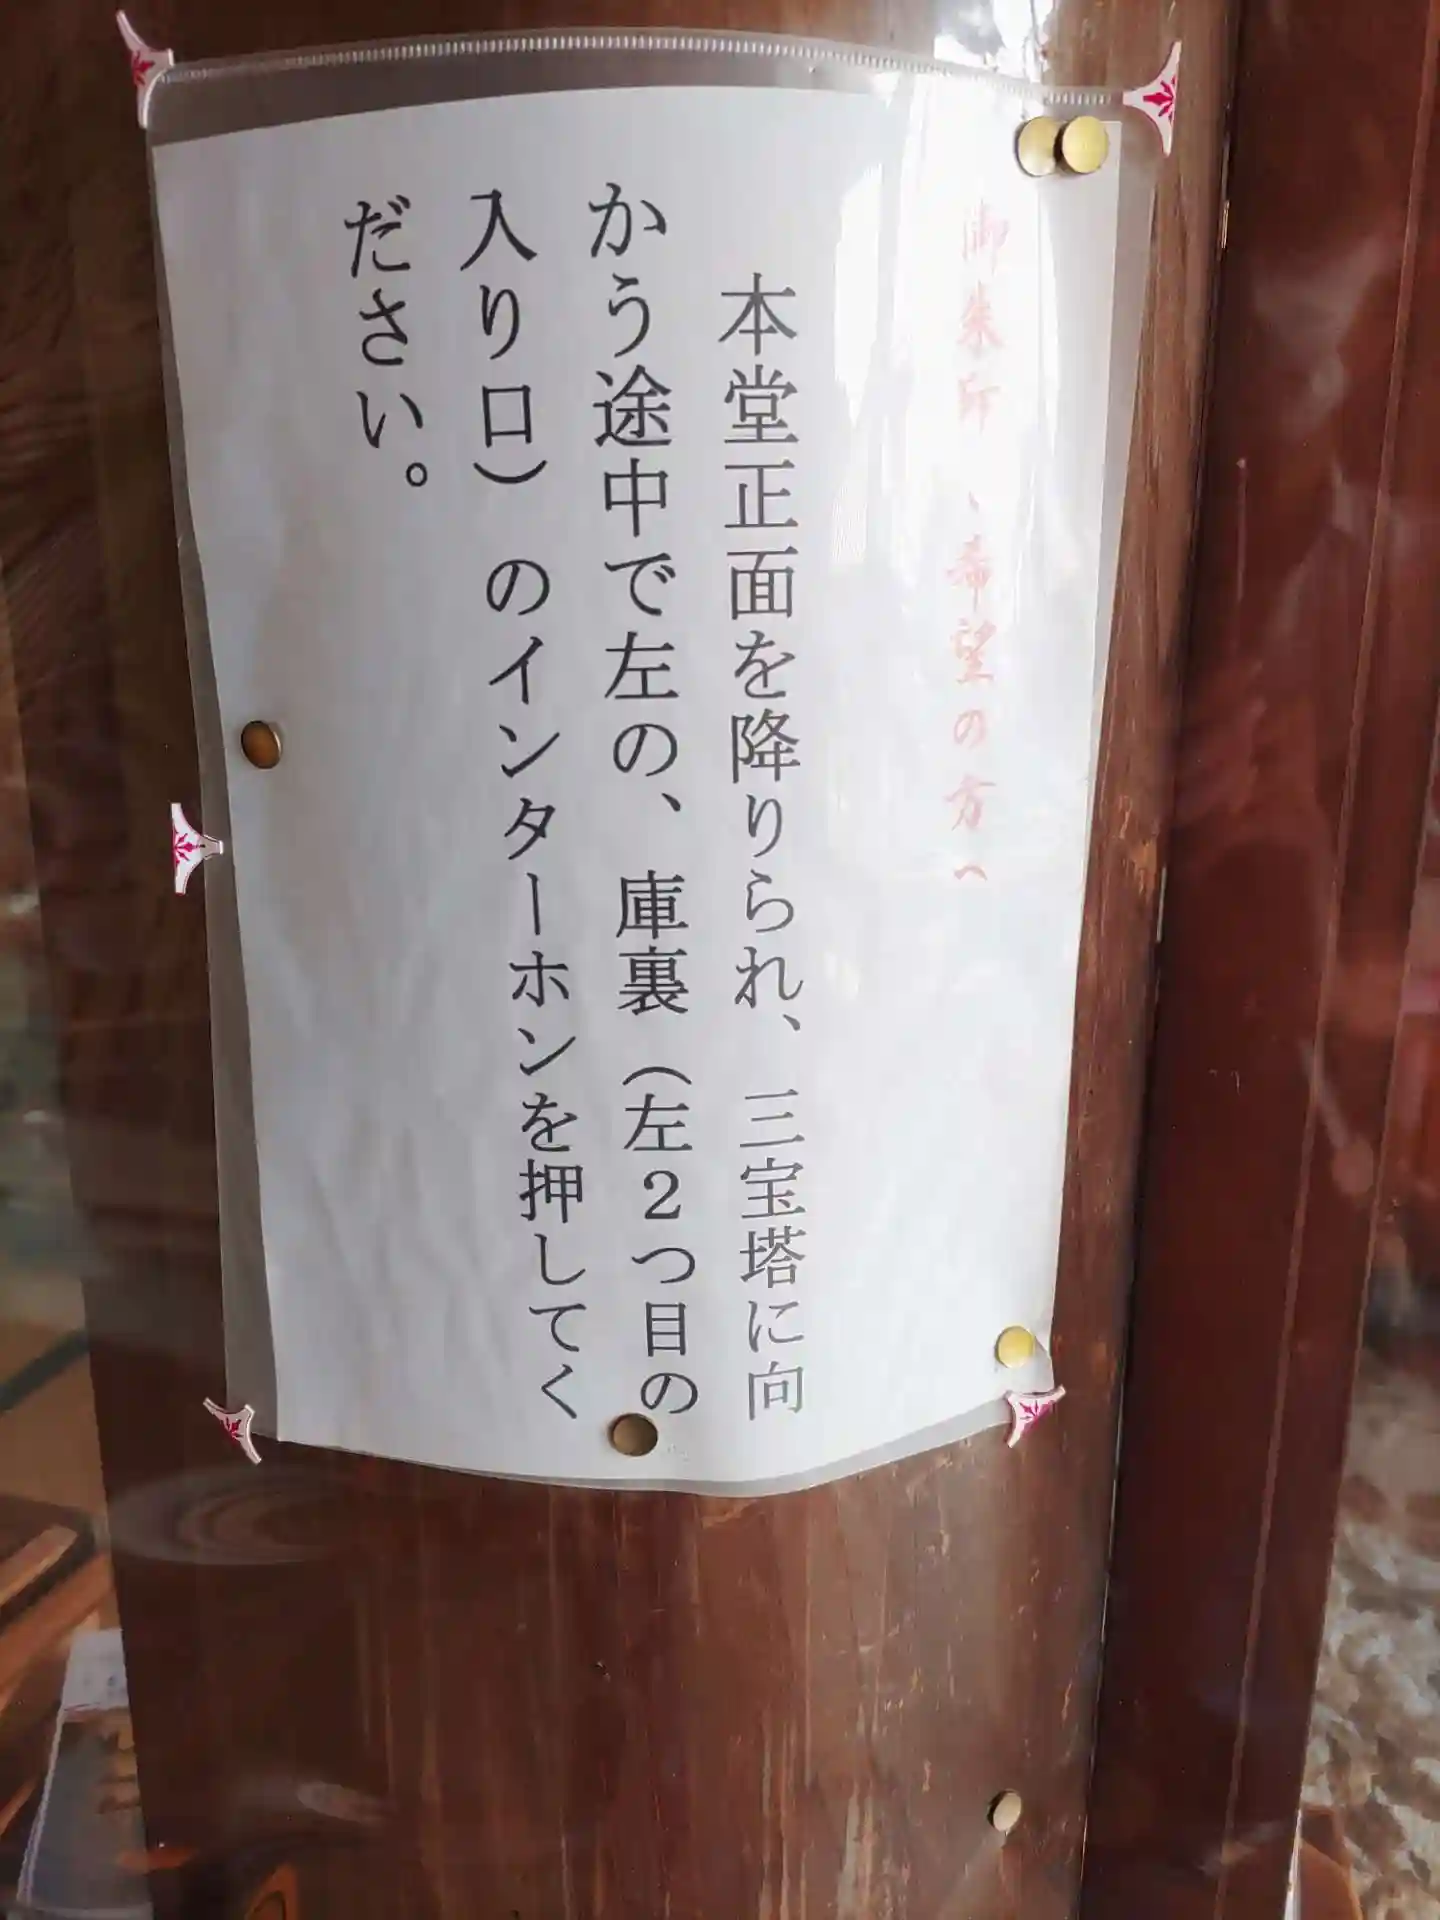 御朱印、希望の方へ
本堂正面を降りられ、三宝塔に向
かう途中で左の、庫裏（左２つ目の
入り口）のインターホンを押してく
ださい。